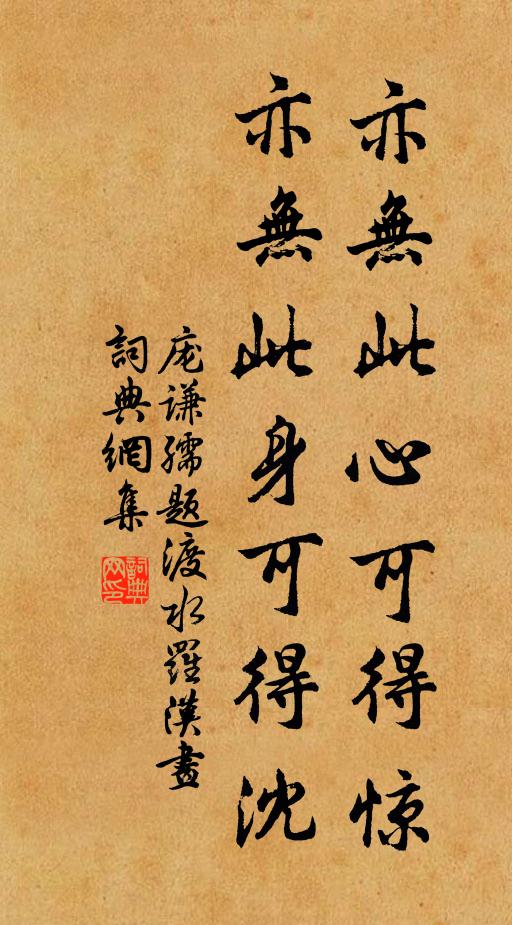 亦無此心可得惊
亦無此身可得沈
庞谦孺题渡水羅漢畫
詞典網集
詞典網印